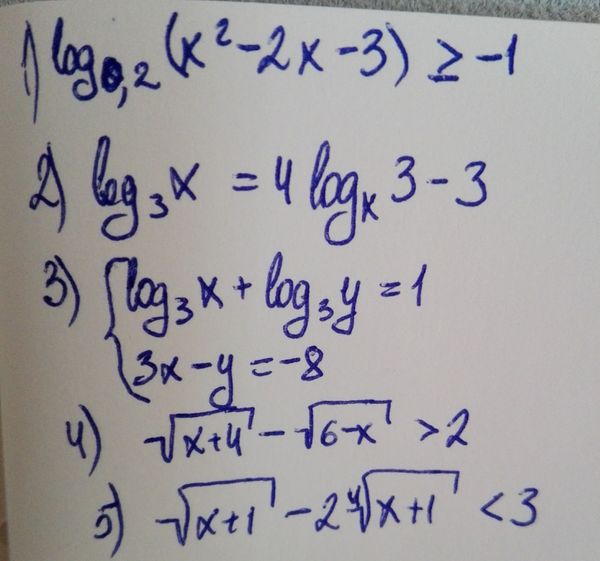 1) log₀,₂ (x² − 2x − 3) ≥ −1
2) log₃ x = 4 logₓ 3 − 3
3) { log₃ x + log₃ y = 1
3x − y = −8
4) √(x+4) − √(6−x) > 2
5) √(x+1) − 2 ⁴√(x+1) < 3